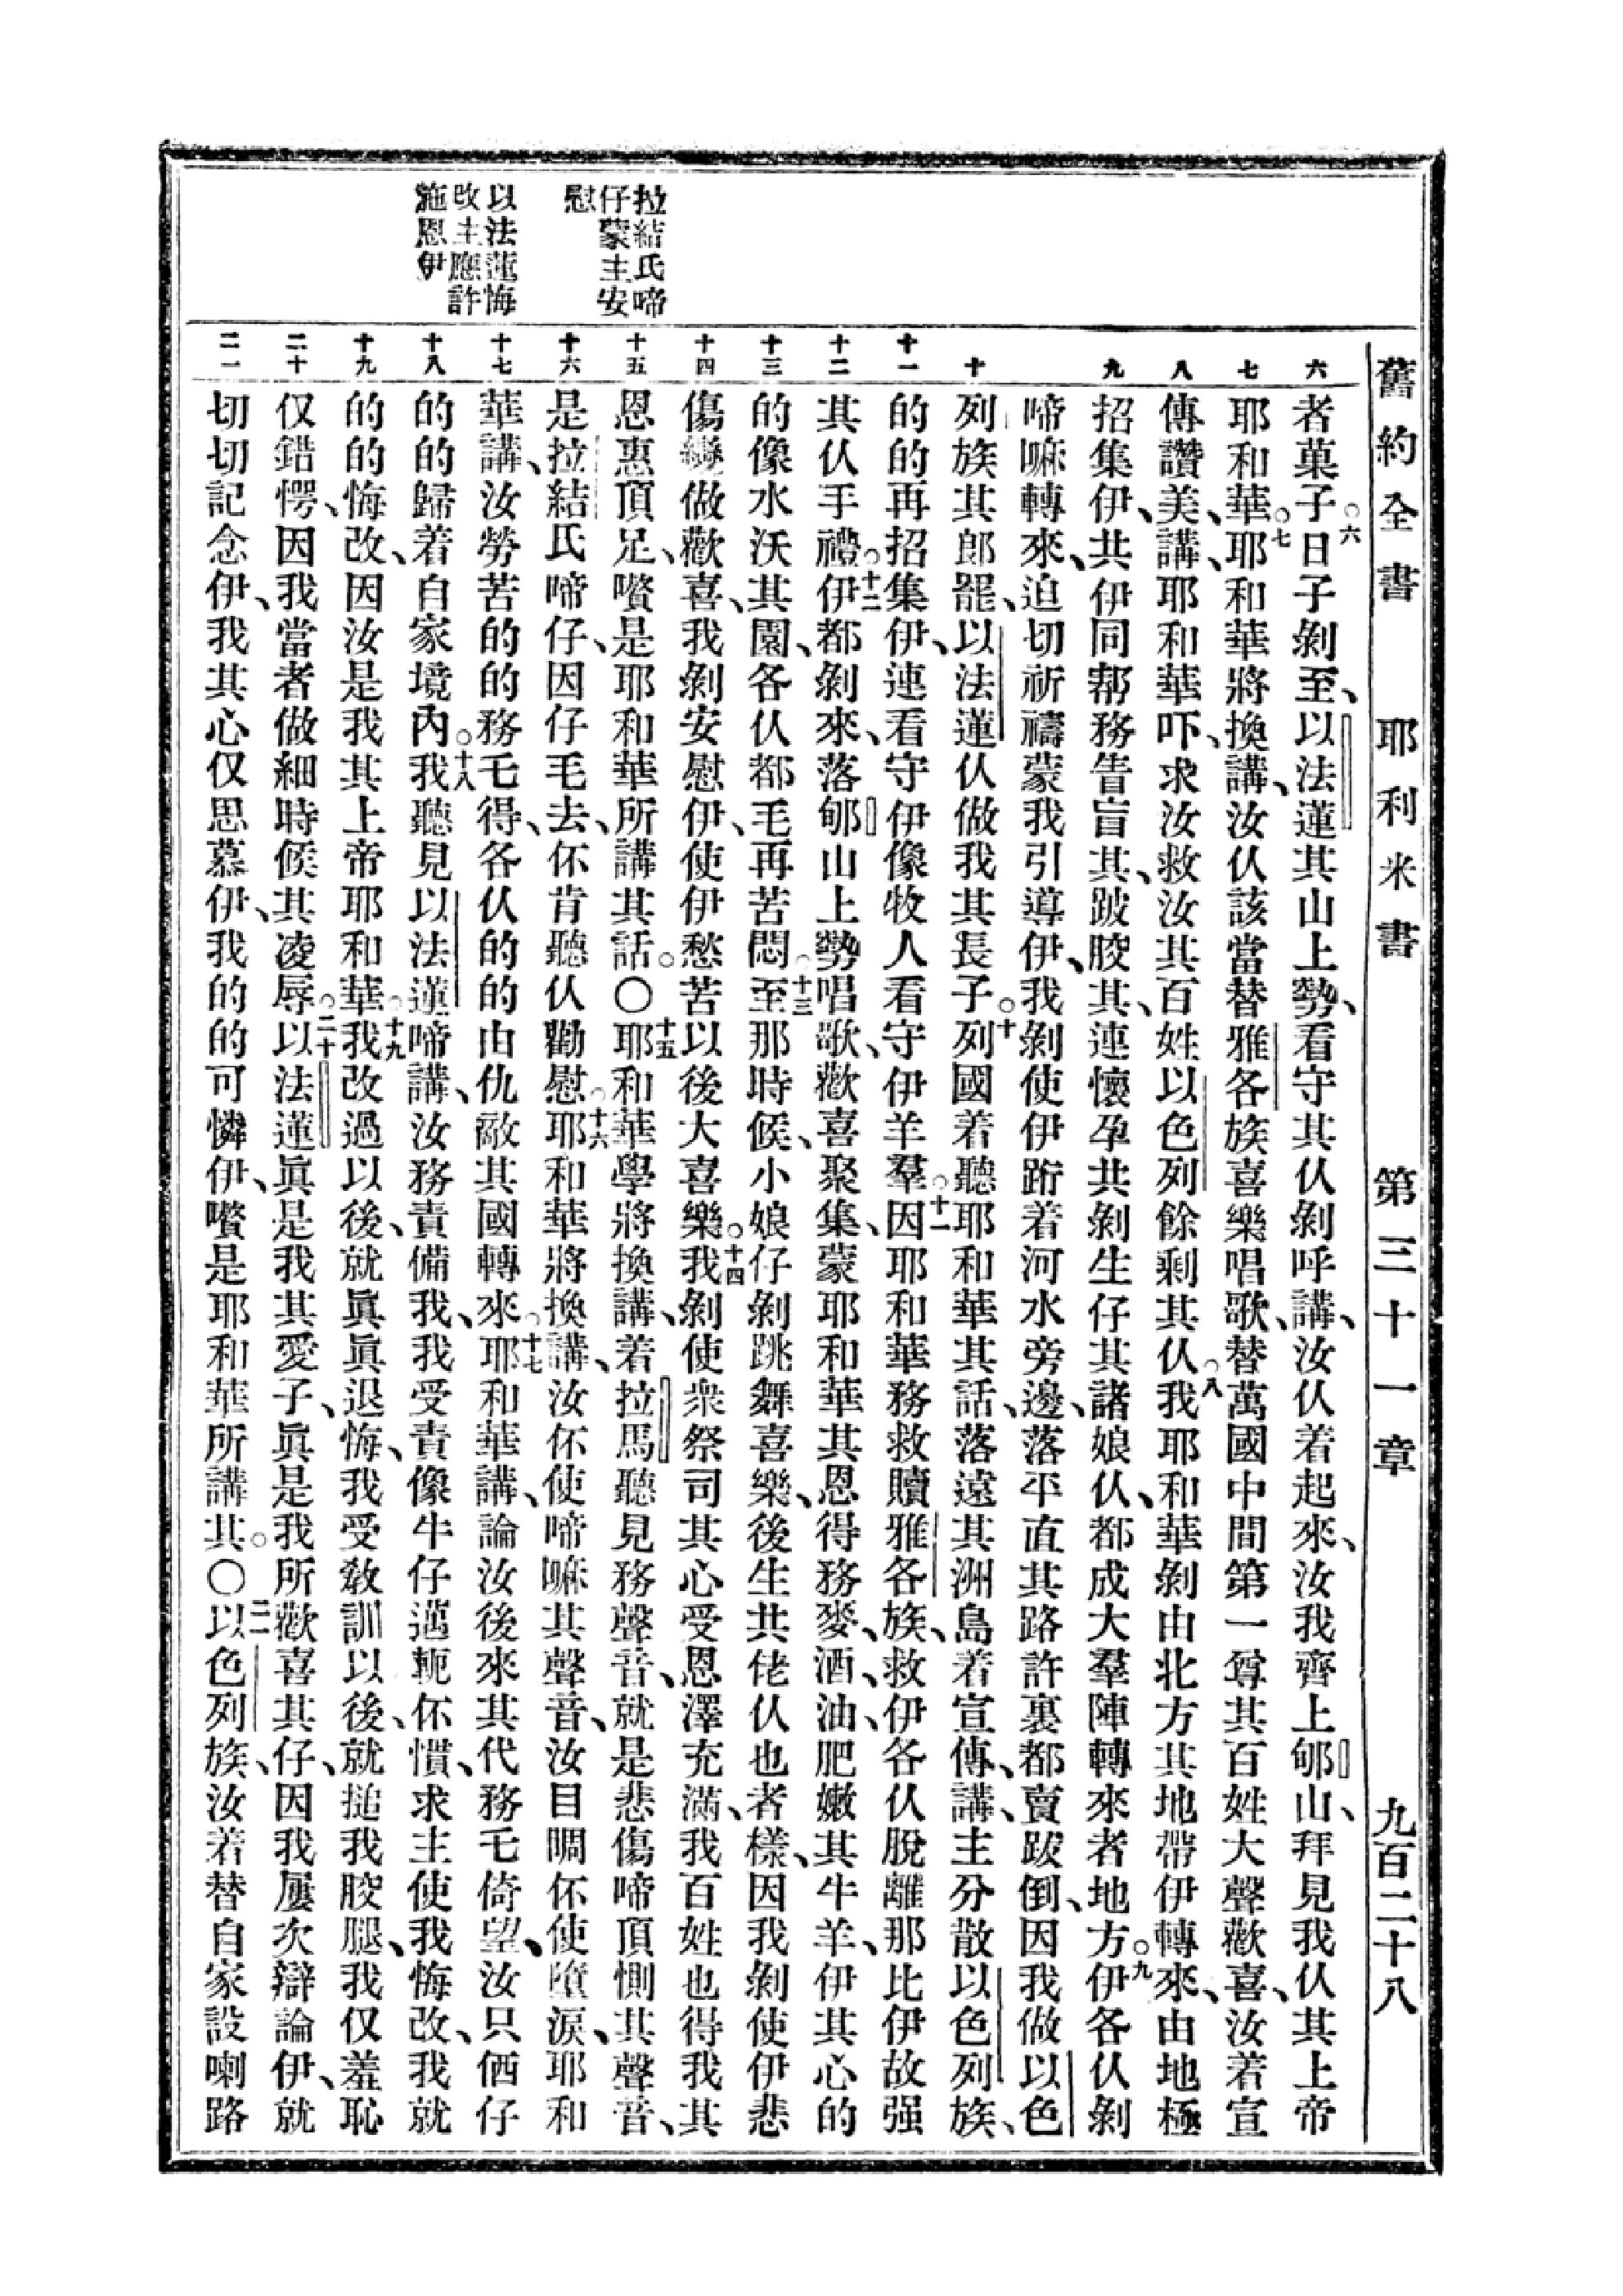 舊約全書 耶利米書 第三十一章 九百二十八
拉結氏啼
仔蒙主安
慰
以法蓮悔
改主應許
施恩伊
六 七 八 九 十 十一 十二 十三 十四 十五 十六 十七 十八 十九 二十 二一
者菓子。六日子剝至、以法蓮其山上勢、看守其仈剝呼講、汝仈着起來、汝我齊上郇山、拜見我仈其上帝
耶和華。七耶和華將換講、汝仈該當替雅各族喜樂唱歌、替萬國中間第一尊其百姓大聲歡喜、汝着宣
傳讚美、講、耶和華吓、求汝救汝其百姓以色列餘剩其仈。八我耶和華剝由北方其地帶伊轉來、由地極
招集伊、共伊同帮務告盲其、跛骹其、連懷孕共剝生仔其諸娘仈、都成大羣陣轉來者地方。九伊各仈剝
啼嘛轉來、迫切祈禱蒙我引導伊、我剝使伊跻着河水旁邊、落平直其路許裏都賣跋倒、因我做以色
列族其郎罷、以法蓮仈做我其長子。十列國着聽耶和華其話、落遠其洲島着宣傳、講、主分散以色列族、
的的再招集伊、連看守伊像牧人看守伊羊羣。十一因耶和華務救贖雅各族、救伊各仈脫離那比伊故强
其仈手禮。十二伊都剝來、落郇山上勢唱歌、歡喜聚集、蒙耶和華其恩得務麥、酒、油、肥嫩其牛羊、伊其心的
的像水沃其園、各仈都毛再苦悶。十三至那時候、小娘仔剝跳舞喜樂、後生共佬仈也者樣、因我剝使伊悲
傷變做歡喜、我剝安慰伊、使伊愁苦以後大喜樂。十四我剝使衆祭司其心受恩澤充滿、我百姓也得我其
恩惠頂足、嚽是耶和華所講其話。〇十五耶和華學將換講、着拉馬聽見務聲音、就是悲傷啼頂惻其聲音、
是拉結氏啼仔、因仔毛去、伓肯聽仈勸慰。十六耶和華將換講、汝伓使啼嘛其聲音、汝目睭伓使墮淚、耶和
華講、汝勞苦的的務乇得、各仈的的由仇敵其國轉來。十七耶和華講、論汝後來其代務乇倚望、汝只伵仔
的的歸着自家境內。十八我聽見以法蓮啼講、汝務責備我、我受責像牛仔邁軛伓慣、求主使我悔改、我就
的的悔改、因汝是我其上帝耶和華。十九我改過以後、就眞眞退悔、我受敎訓以後、就搥我骹腿、我仅羞恥
仅錯愕、因我當者做細時候其凌辱。二十以法蓮眞是我其愛子、眞是我所歡喜其仔、因我屢次辯論伊、就
切切記念伊、我其心仅思慕伊、我的的可憐伊、嚽是耶和華所講其。〇二一以色列族、汝若替自家設喇路